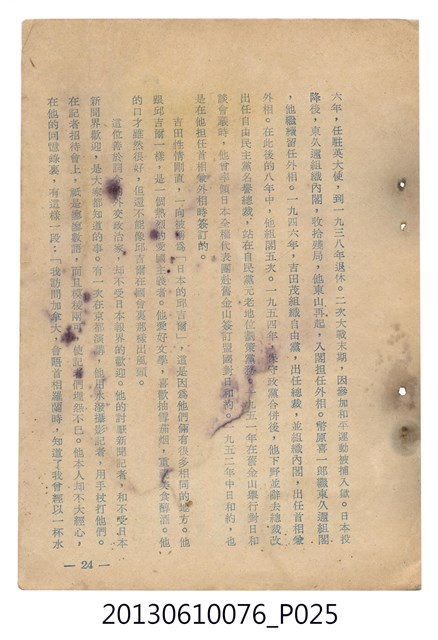 六年，任駐英大使，到一九三八年退休。二次大戰末期，因參加和平運動被捕入獄。日本投
降後，東久邇組織內閣，收拾殘局，他東山再起，入閣担任外相。幣原喜一郎繼東久邇組閣
，他繼續留任外相。一九四六年，吉田茂組織自由黨，出任總裁，並組織內閣，出任首相兼
外相。在此後的八年中，他組閣五次。一九五四年，保守政黨合併後，他下野並辭去總裁改
出任自由民主黨名譽總裁，站在自民黨元老地位
一九五一年在舊金山舉行對日和
談會議時，他曾率領日本全權代表團赴舊金山簽訂盟國對日和約。一九五二年中日和約，也
是在他担任首相兼外相時簽訂的。
吉田性情剛直，一向被稱為「日本的邱吉爾」，這是因為他們倆有很多相同的地方。他
跟邱吉爾一樣，是一個熱烈的愛國主義者。他愛好文學，喜歡抽雪茄烟，
美食醇酒。他
的口才雖然很好，但還不能像邱吉爾在國會裏那樣出風頭。
這位善於
外交政治家，却不受日本報界的歡迎。他的討厭新聞記者，和不受日本
新聞界歡迎，是大家都知道的事。有一次在京都演講，他用水潑攝影記者，用手杖打他們。
在記者招待會上，
而且模稜兩可，使記者們埋怨不已。他本人却不大經心，
在他的回憶錄裏，有這樣一段：「我訪問加拿大，會晤首相羅蘭時，知道了我曾經以一杯水
— 24 —
20130610076_P025